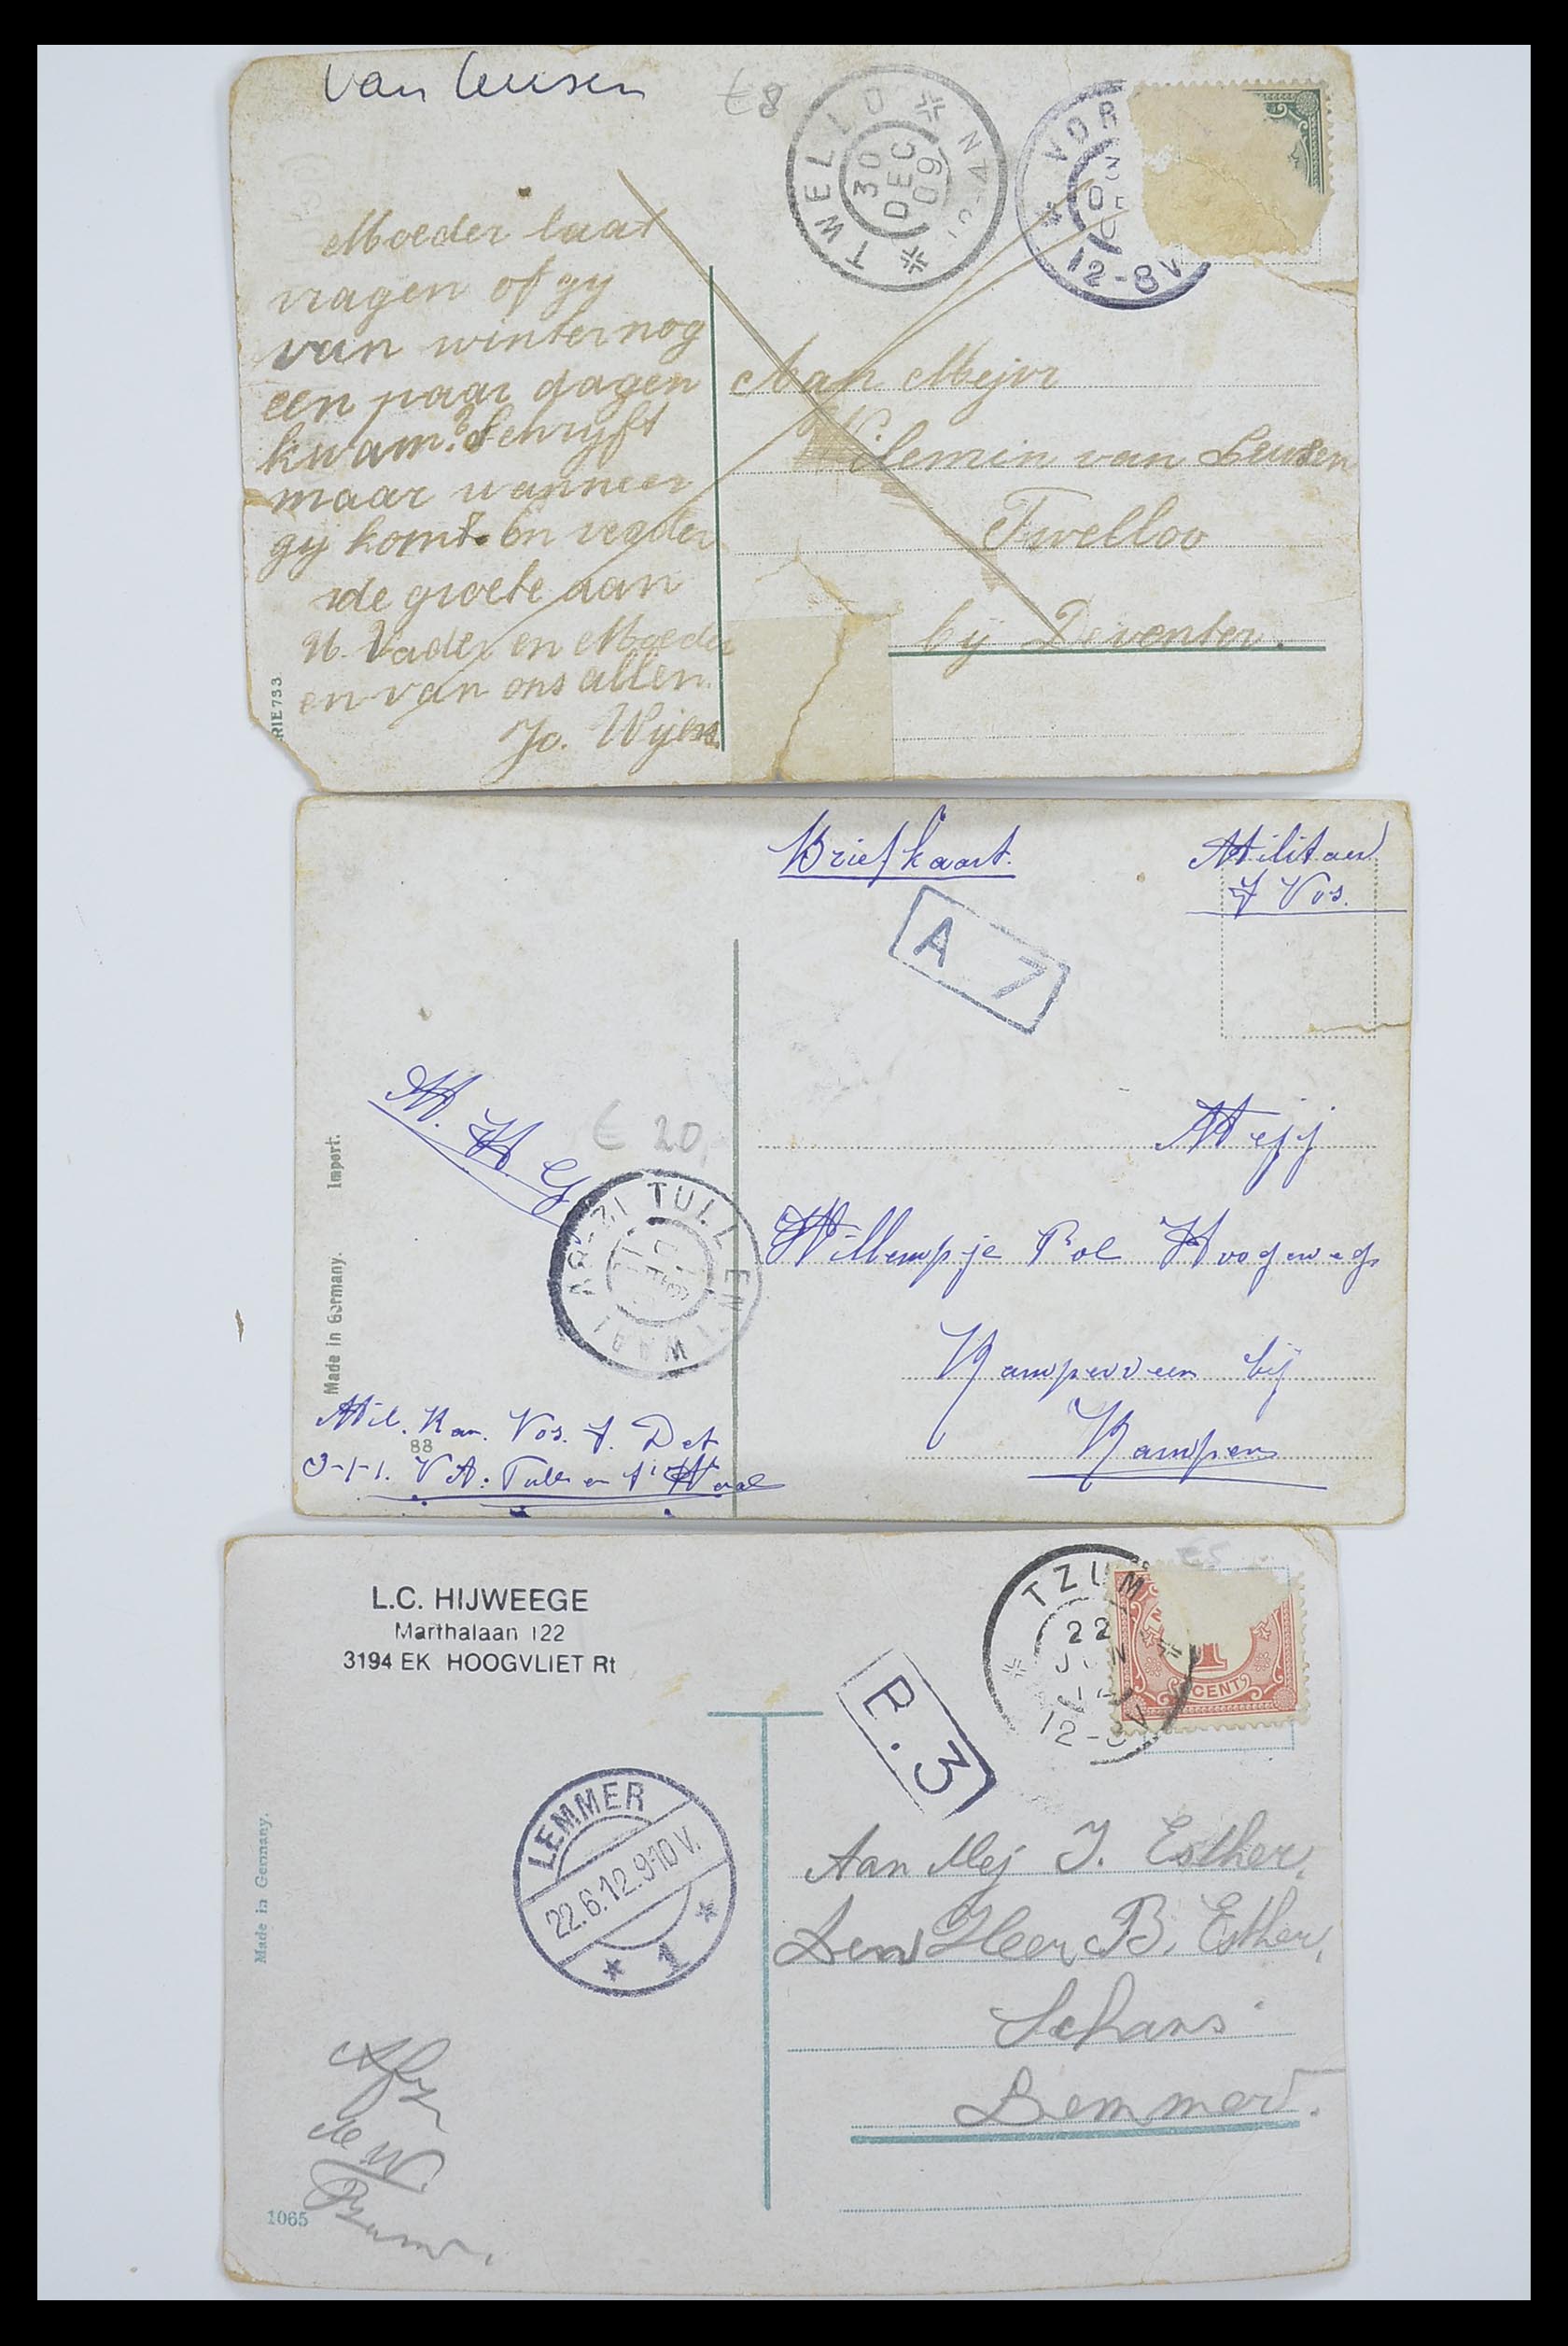 van Leusen
€8
TWELLO
30
DEC
09
VOR
12-8V
Moeder laat
vragen of gy
van winter nog
een paar dagen
kwam? Schryft
maar wanneer
gy komt. En verder
de groete aan
U. Vader en Moeder
en van ons allen.
Jo. Wijers
Aan Mejvr
Wilemin van Leusen
Twelloo
bij Deventer.
RIE 733
Briefkaart.
Militair
J Vos.
A 7
M. H. G
€ 20,
TULL EN 'T WAAL
Mejj
Willempje Pol Hoogeweg
Kamperveen bij
Kampen
Made in Germany. Import.
Mil. Kan. Vos. J. Det
88
3-1-1. V A: Tull en 't Waal
L.C. HIJWEEGE
Marthalaan 122
3194 EK HOOGVLIET Rt
TZUM
22
JUN
12
12-8V
1
CENT
B.3
LEMMER
22.6.12.9-10V.
1
Aan Mej J. Esther,
Den Heer B. Esther,
Schans
Lemmer.
Made in Germany.
1065
Afz
de W.